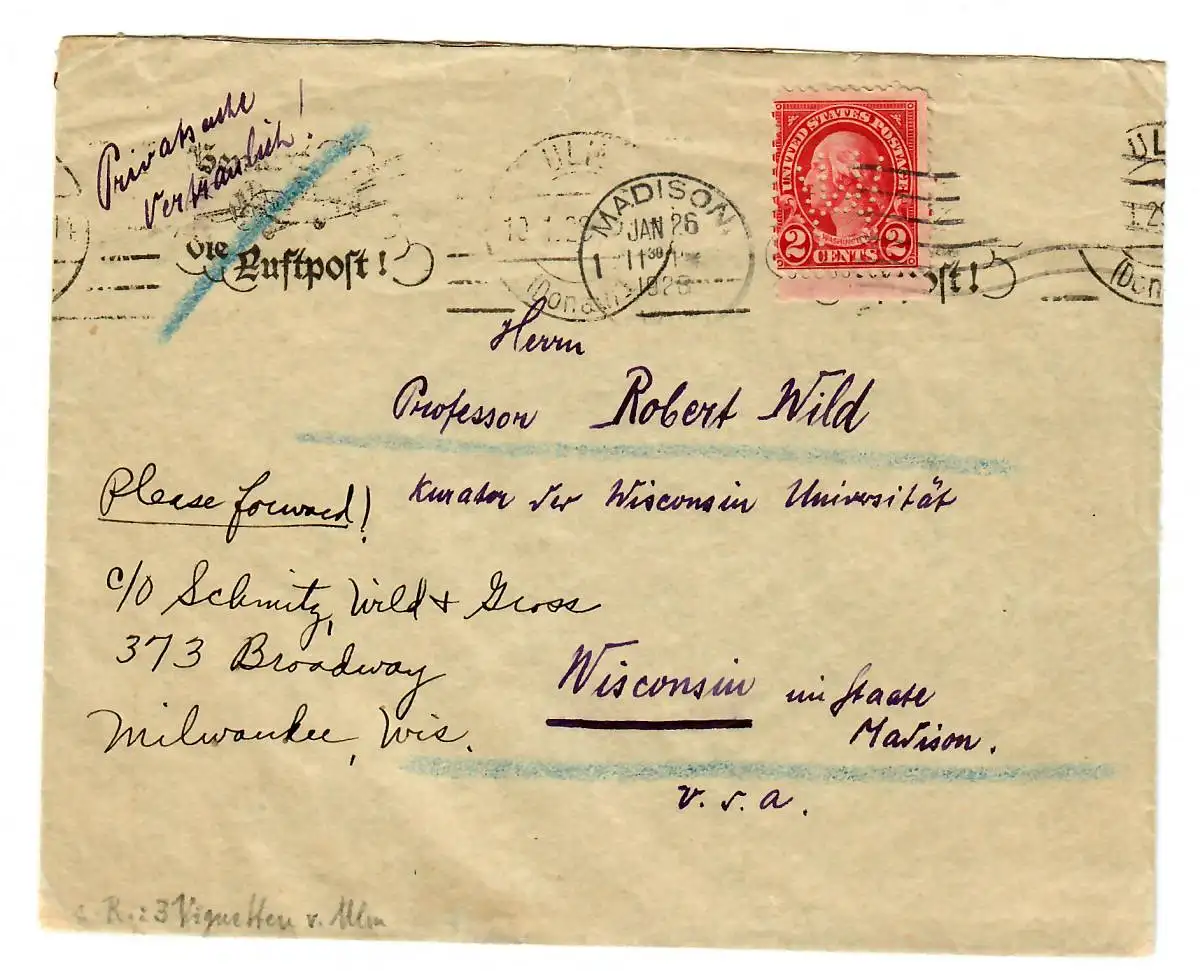 Privatsache
Vertraulich!
die
Luftpost!
ULM
(Donau)
MADISON
JAN 26
1 11 30
1928
UNITED STATES POSTAGE
WASHINGTON
2 CENTS 2
UL
(Don
ost!
Herrn
Professor Robert Wild
Kurator der Wisconsin Universität
Please forward!
c/o Schmitz, Wild & Gross
373 Broadway
Milwaukee, Wis.
Wisconsin im Staate
Madison.
U.S.A.
3 Vignetten v. Ulm